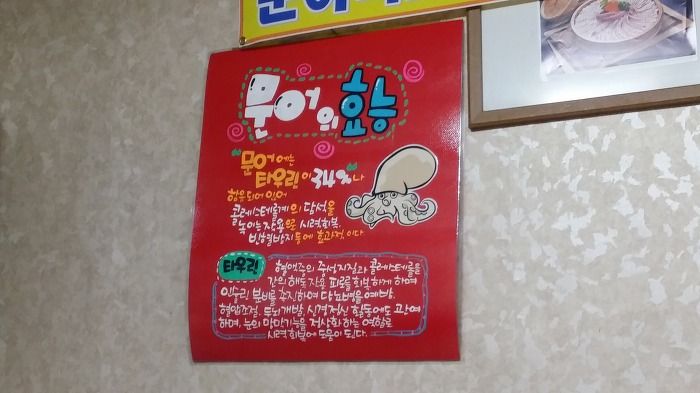 문어의 효능
"문어에는
타우린이 34%"나
함유되어 있어
콜레스테롤계의 담석을
녹이는 작용은 시력회복,
빈혈방지 등에 효과적이다
타우린
혈액중의 중성지질과 콜레스테롤을
간의 해독작용 피로를 회복하게 하며
인슈린 분비를 촉진하며 당뇨병을 예방.
혈압조절, 두뇌개발, 신경정신 활동에도 관여
하며, 눈의 망막기능을 정상화 하는 역할로
시력회복에 도움이 된다.